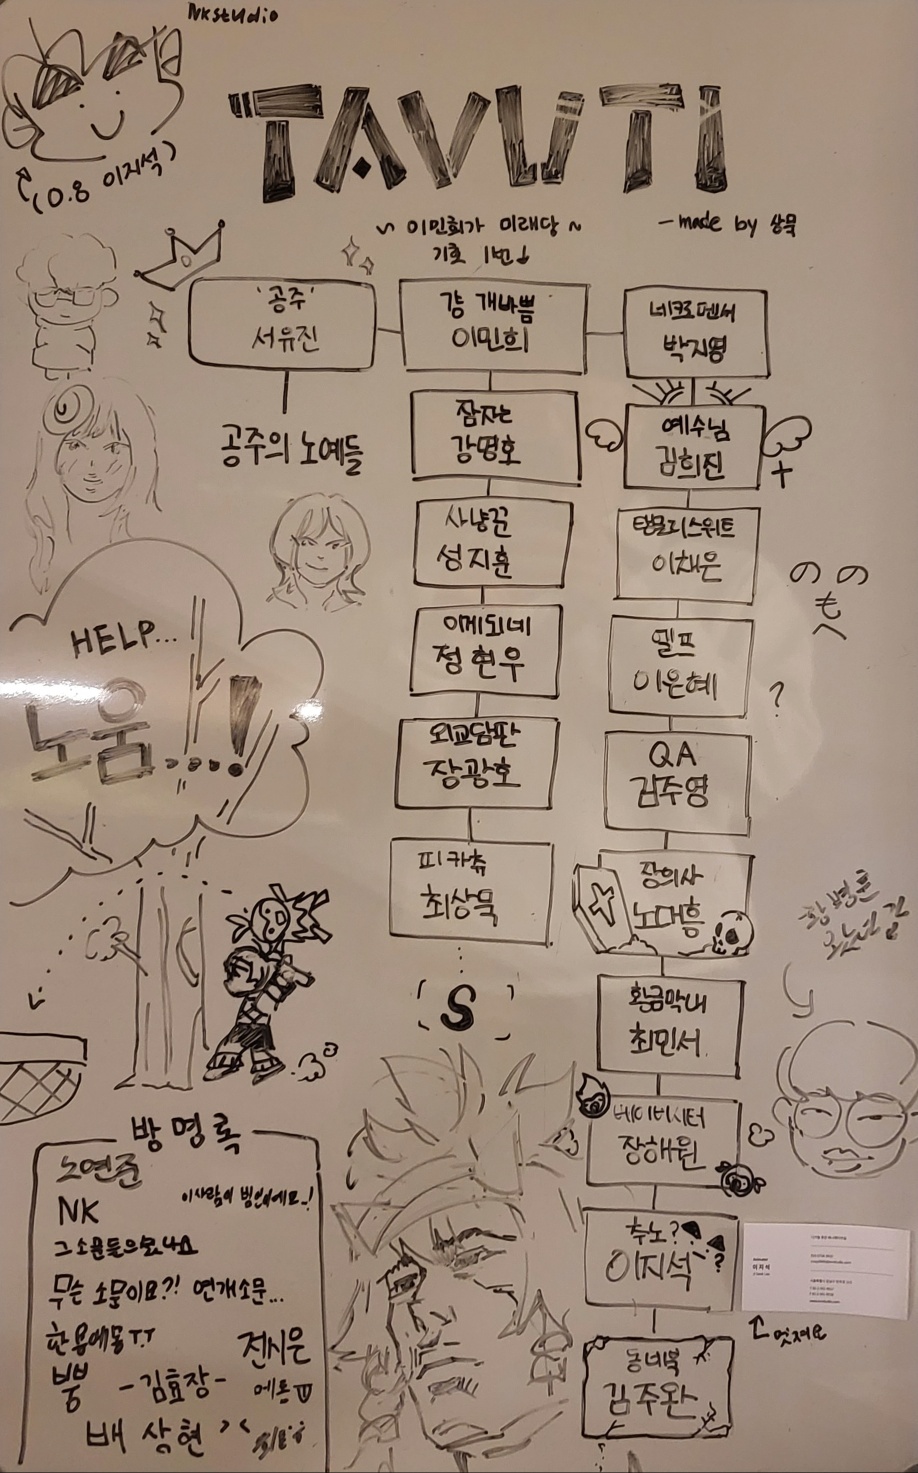 NKstudio
TAVUTI
(0.8 이지석)
~ 이민희가 미래당 ~
기호 1번
- made by 상묵
'공주'
서유진
공주의 노예들
걍 개바쁨
이민희
잠자는
강명호
사냥꾼
성지훈
이메되네
정현우
외교담판
장광호
피카츄
최상묵
S
네크로멘서
박지영
예수님
김희진
탬플리스위트
이채은
엘프
이은혜
?
QA
김주영
장의사
노대흠
황금막내
최민서
베이비시터
장해원
추노?
?
이지석
동네북
김주완
のの
も
へ
HELP...
노움...!
멋져요
이지석
방명록
노연준
NK
이사람이 범인이에요..!
무슨 소문이요?! 연개소문...
전시은
-김효장-
배상현